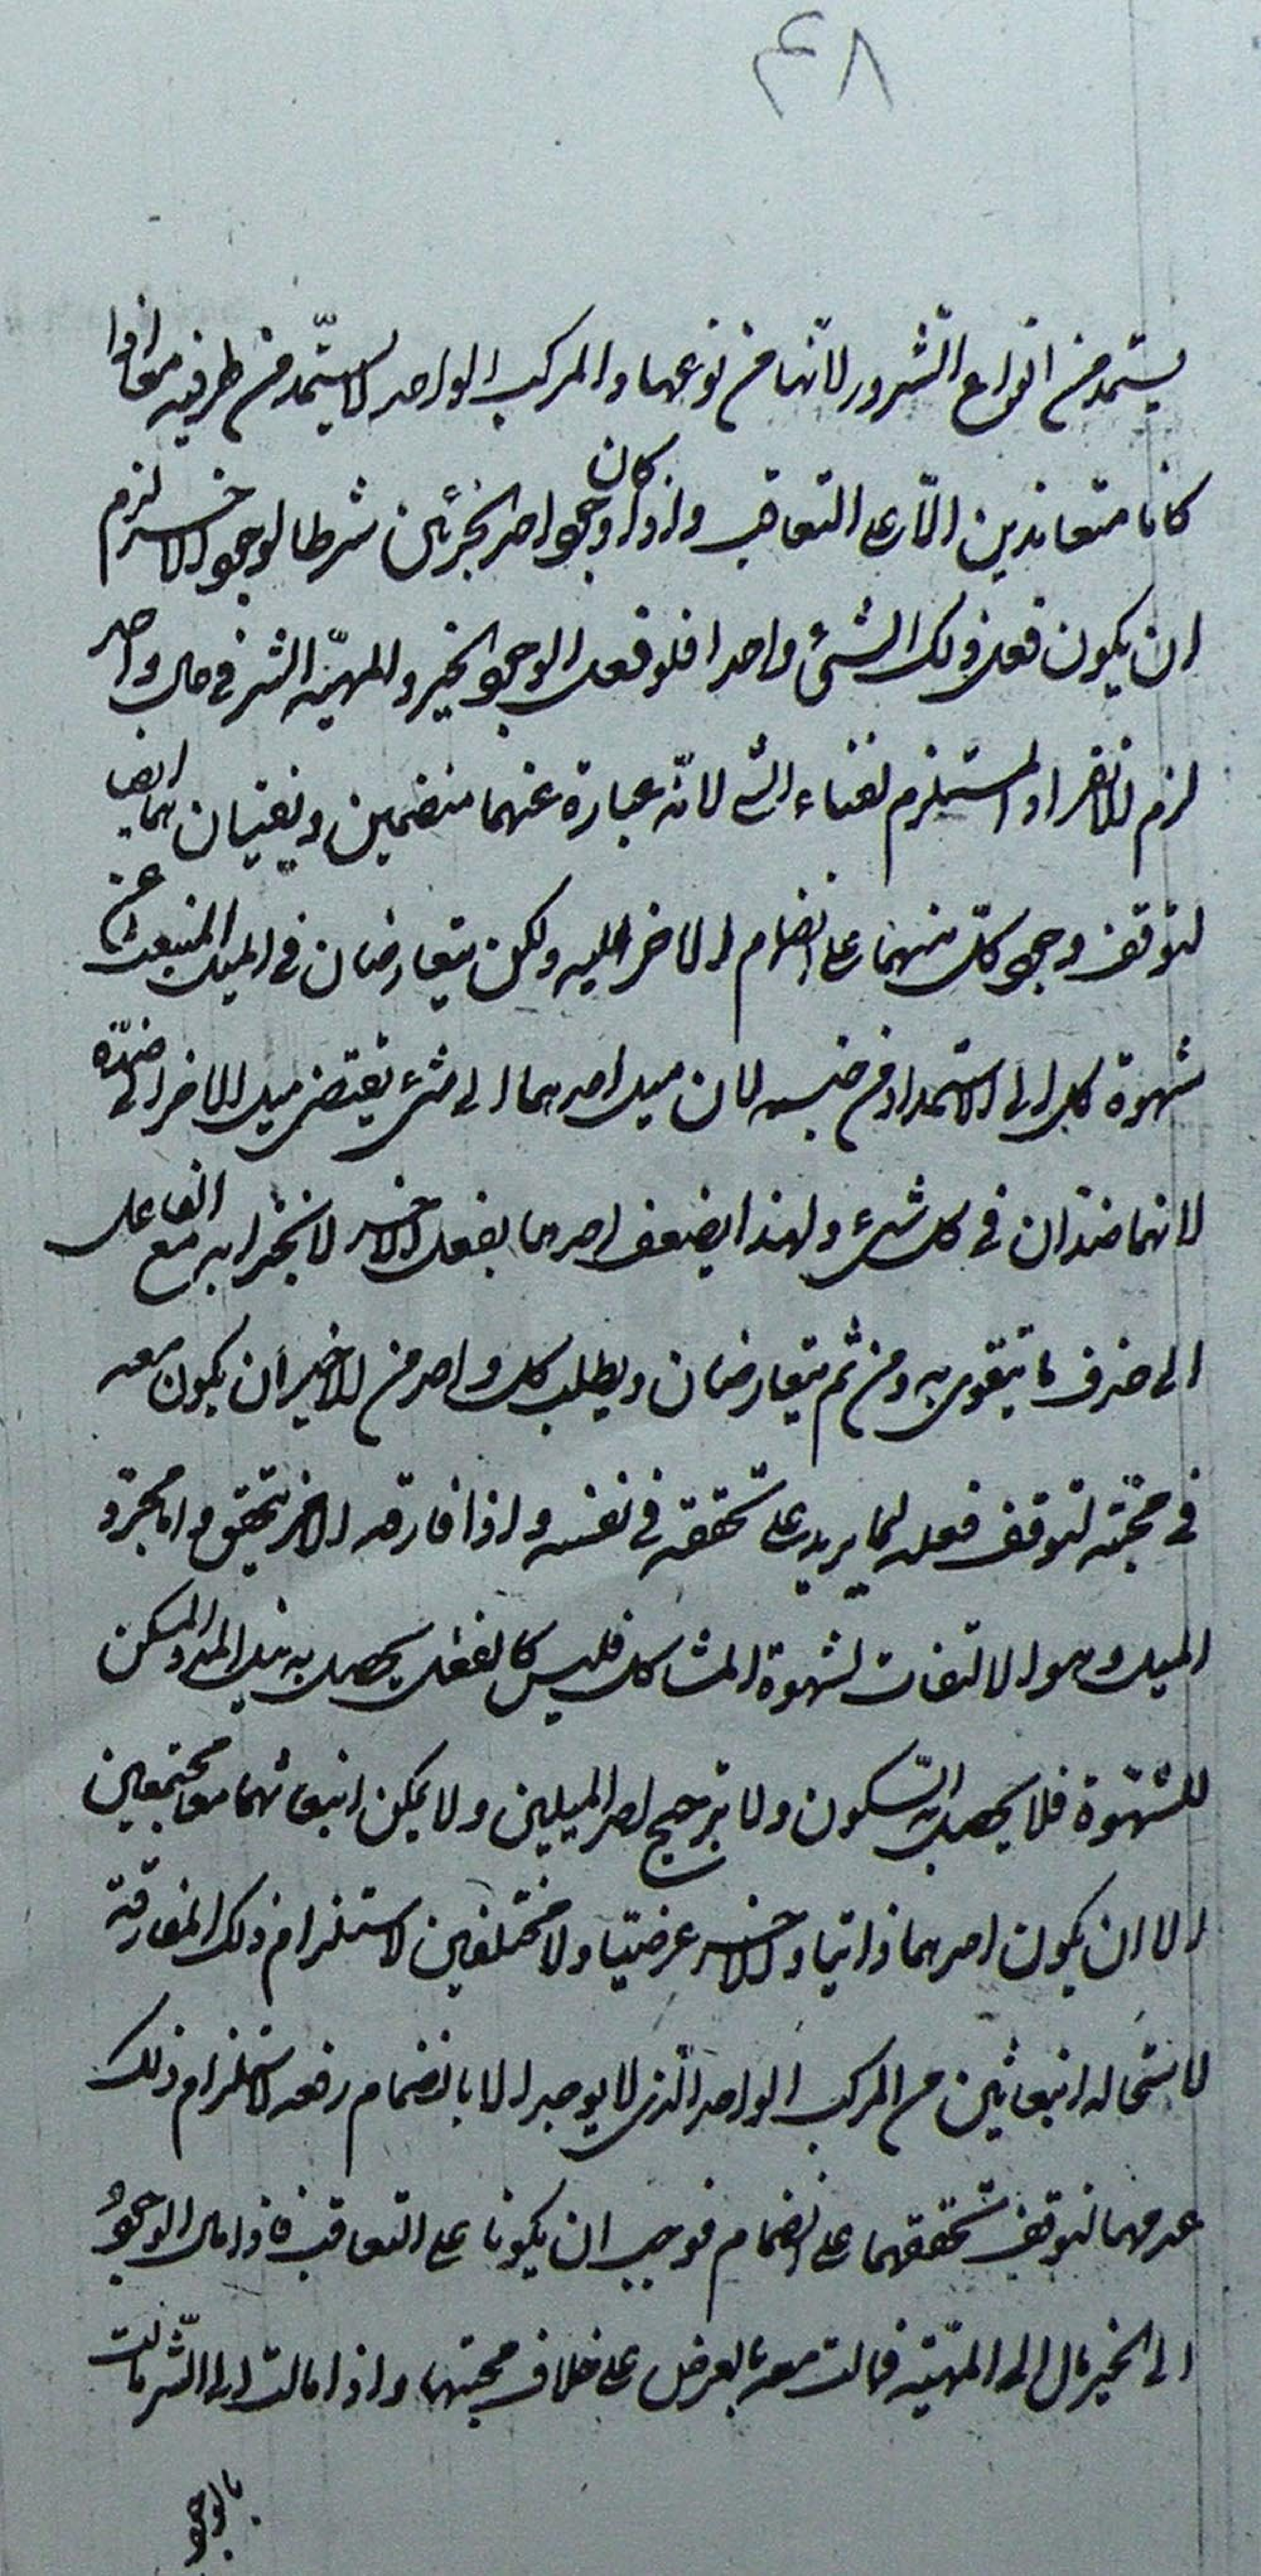 ٤٨
يستمد من انواع الشرور لانّها من نوعها والمركب الواحد لا يستمّد من طرفيه معا اذا
كانا متعاندين الّا على التعاقب واذا كان وجود احد الجزئين شرطا لوجود الاخر لزم
ان يكون فعل ذلك الشئ واحدا فلو فعل الوجود الخير والمهيّه الشر فى حال واحد
لزم الانفراد المستلزم لفناء الشئ لانّه عبارة عنهما منضمين ويفنيان هما ايضا
لتوقف وجود كلّ منهما على انضمام الاخر اليه ولكن يتعارضان فى الميل المنبعث عن
شهوة كل الى الاستمداد من جنسه لان ميل احدهما الى شئ يقتضى ميل الاخر الى ضدّه
لانهما ضدان فى كل شئ ولهذا يضعف احدهما بفعل الاخر لانجراره مع الفاعل
الى خلاف ما يتقوى به ومن ثم يتعارضان ويطلب كل واحد من الاخير ان يكون معه
فى محبته لتوقف فعله لما يريد على تحققه فى نفسه واذا فارقه الاخر لم يتحقق واما مجرد
الميل وهو الالتفات لشهوة المشاكل فليس كالفعل يحصل به نيل المدد المسكن
للشهوة فلا يحصل به السّكون ولا ترجيح احد الميلين ولا يمكن انبعاثهما معا مجتمعين
الا ان يكون احدهما ذاتيا والاخر عرضيا ولا مختلفين لاستلزام ذلك المفارقة
لاستحالة انبعاثين من المركب الواحد الّذى لا يوجد الا بانضمام رفعه لاستلزام ذلك
عدمهما لتوقف تحققهما على الانضمام فوجب ان يكونا على التعاقب فاذا مال الوجود
الى الخير مال الى المهيّه فمالت معه بالعرض على خلاف محبتها واذا مالت الى الشّر مالت
بالوجود